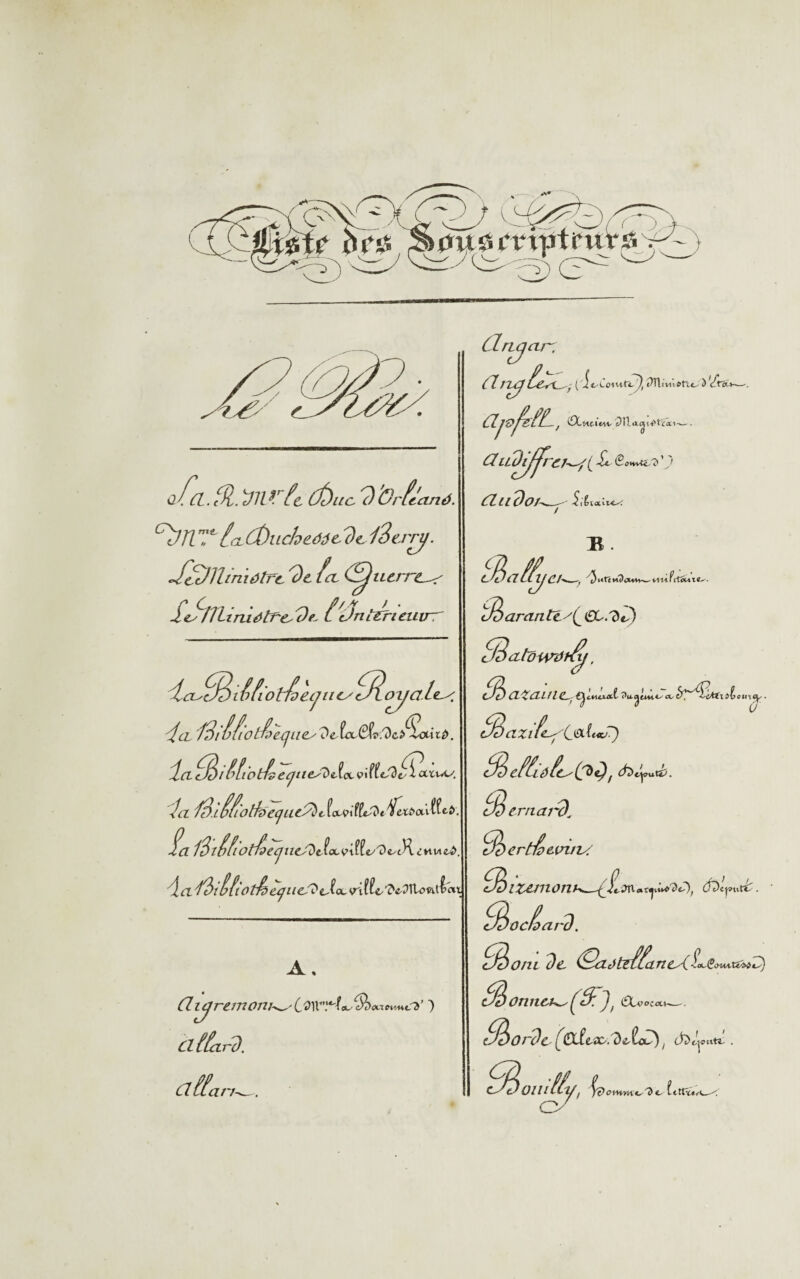 Liste des Souscripteurs.
Le Roi.
S. A. R. Mgr. le Duc d'Orléans.
Mme. la Duchesse de Berry.
Le Ministre de la Guerre
Le Ministre de l'Intérieur
La Bibliothèque Royale.
La Bibliothèque de la Ch. des Pairs.
La Bibliothèque de la ville de Paris.
La Bibliothèque de la ville de Versailles.
La Bibliothèque de la ville de Rennes.
La Bibliothèque de la ville de Montbar
A.
Aigremont (Mme. la Baronne d')
Allard.
Allart.
Angar,
Anglès, (Le Comte), Ministre d'Etat.
Apffell, Ancien Magistrat.
Audiffret (Le Comte d')
Audot Libraire.
B.
Ballyet, Intendant militaire.
Barante (A. de)
Batowsky,
Bazaine, Général du génie à St. Pétersbourg.
Bazile (Alex.)
Bellisle (De), Député.
Bernard,
Berthevin
Bizemont (Le Marquis de), Député.
Bochard.
Boni de Castellane (La Comtesse)
Bonnet (F.), Avocat.
Borde (Alex. de la), Député.
Bouilly, homme de lettres.